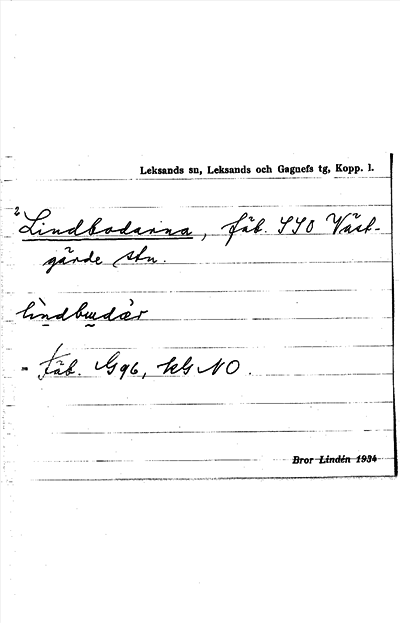 Leksands sn, Leksands och Gagnefs tg, Kopp. l.
2 Lindbodarna, fäb. SSO Väst-
gärde stn.
lìndbɯdàr
- Fäb. G96, kG NO.
Bror Lindén 1934